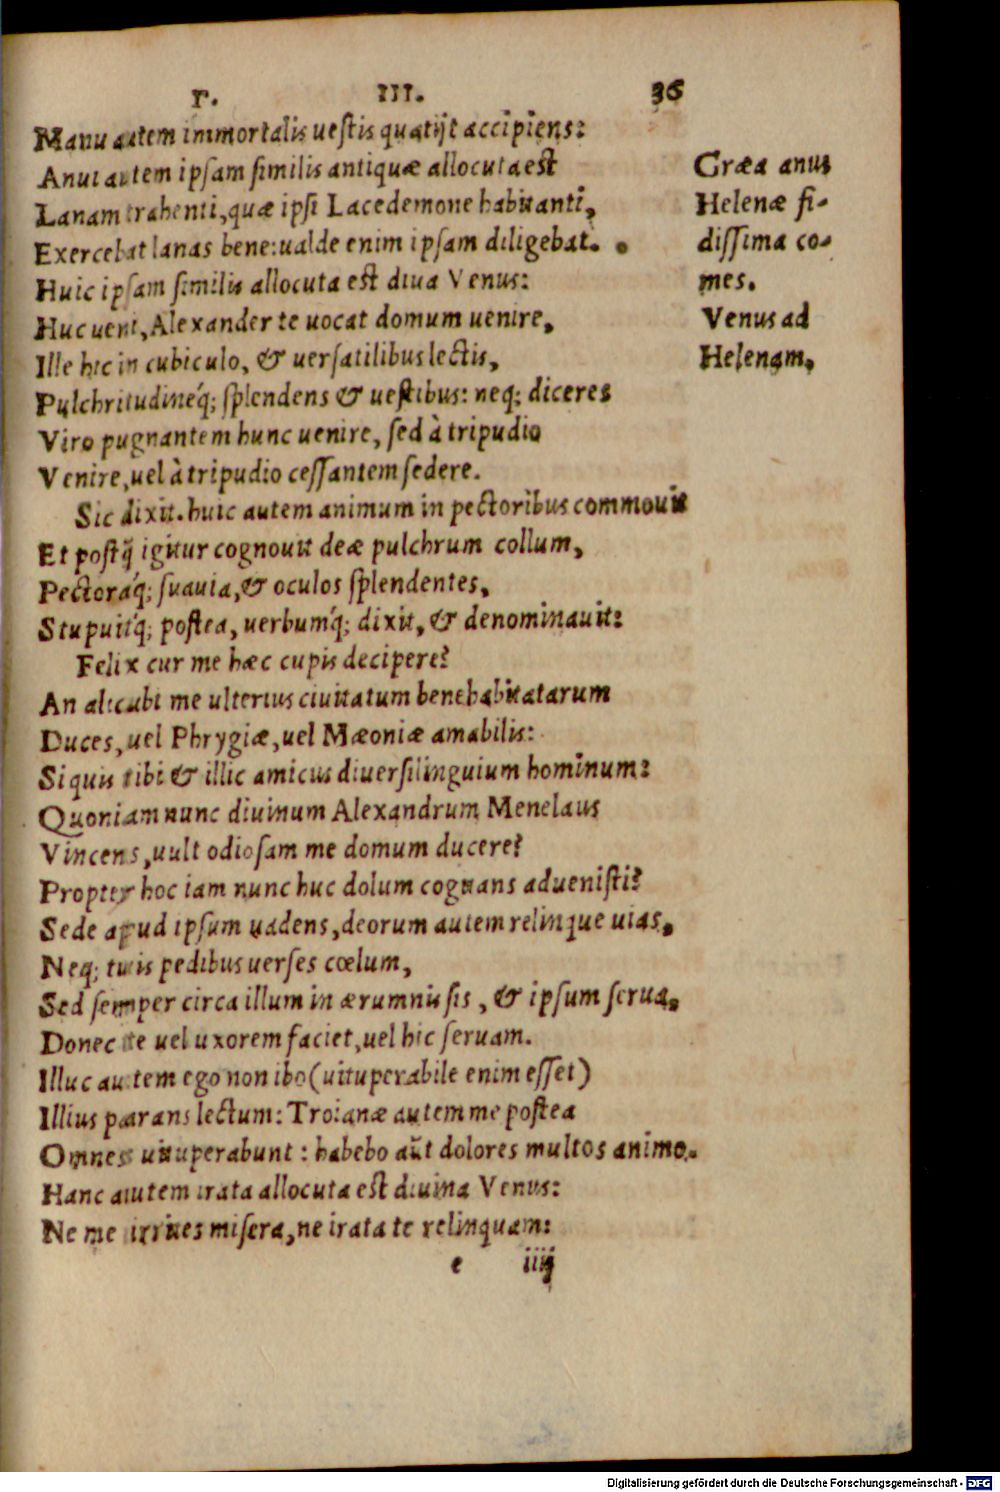 Γ. III. 36
Manu autem immortalis uestis quatijt accipiens:
Anui autem ipsam similis antiquæ allocuta est
Lanam trahenti, quæ ipsi Lacedemone habitanti,
Exercebat lanas bene: ualde enim ipsam diligebat.
Huic ipsam similis allocuta est diua Venus:
Huc ueni, Alexander te uocat domum uenire,
Ille hic in cubiculo, & uersatilibus lectis,
Pulchritudineq́; splendens & uestibus: neq; diceres
Viro pugnantem hunc uenire, sed à tripudio
Venire, uel à tripudio cessantem sedere.
Sic dixit. huic autem animum in pectoribus commouit
Et postq̃ igitur cognouit deæ pulchrum collum,
Pectoraq́; suauia, & oculos splendentes,
Stupuitq́; postea, uerbumq́; dixit, & denominauit:
Felix cur me hæc cupis decipere?
An alicubi me ulterius ciuitatum bene habitatarum
Duces, uel Phrygiæ, uel Mæoniæ amabilis:
Si quis tibi & illic amicus diuersilinguium hominum?
Quoniam nunc diuinum Alexandrum Menelaus
Vincens, uult odiosam me domum ducere?
Propter hoc iam nunc huc dolum cogitans aduenisti?
Sede apud ipsum uadens, deorum autem relinque uias,
Neq; tuis pedibus uerses cœlum,
Sed semper circa illum in ærumnis sis, & ipsum serua,
Donec te uel uxorem faciet, uel hic seruam.
Illuc autem ego non ibo (uituperabile enim esset)
Illius parans lectum: Troianæ autem me postea
Omnes uituperabunt: habebo aũt dolores multos animo.
Hanc autem irata allocuta est diuina Venus:
Ne me irrites misera, ne irata te relinquam:
e iiij
Græa anus
Helenæ fi-
dissima co-
mes.
Venus ad
Helenam,
Digitalisierung gefördert durch die Deutsche Forschungsgemeinschaft - DFG